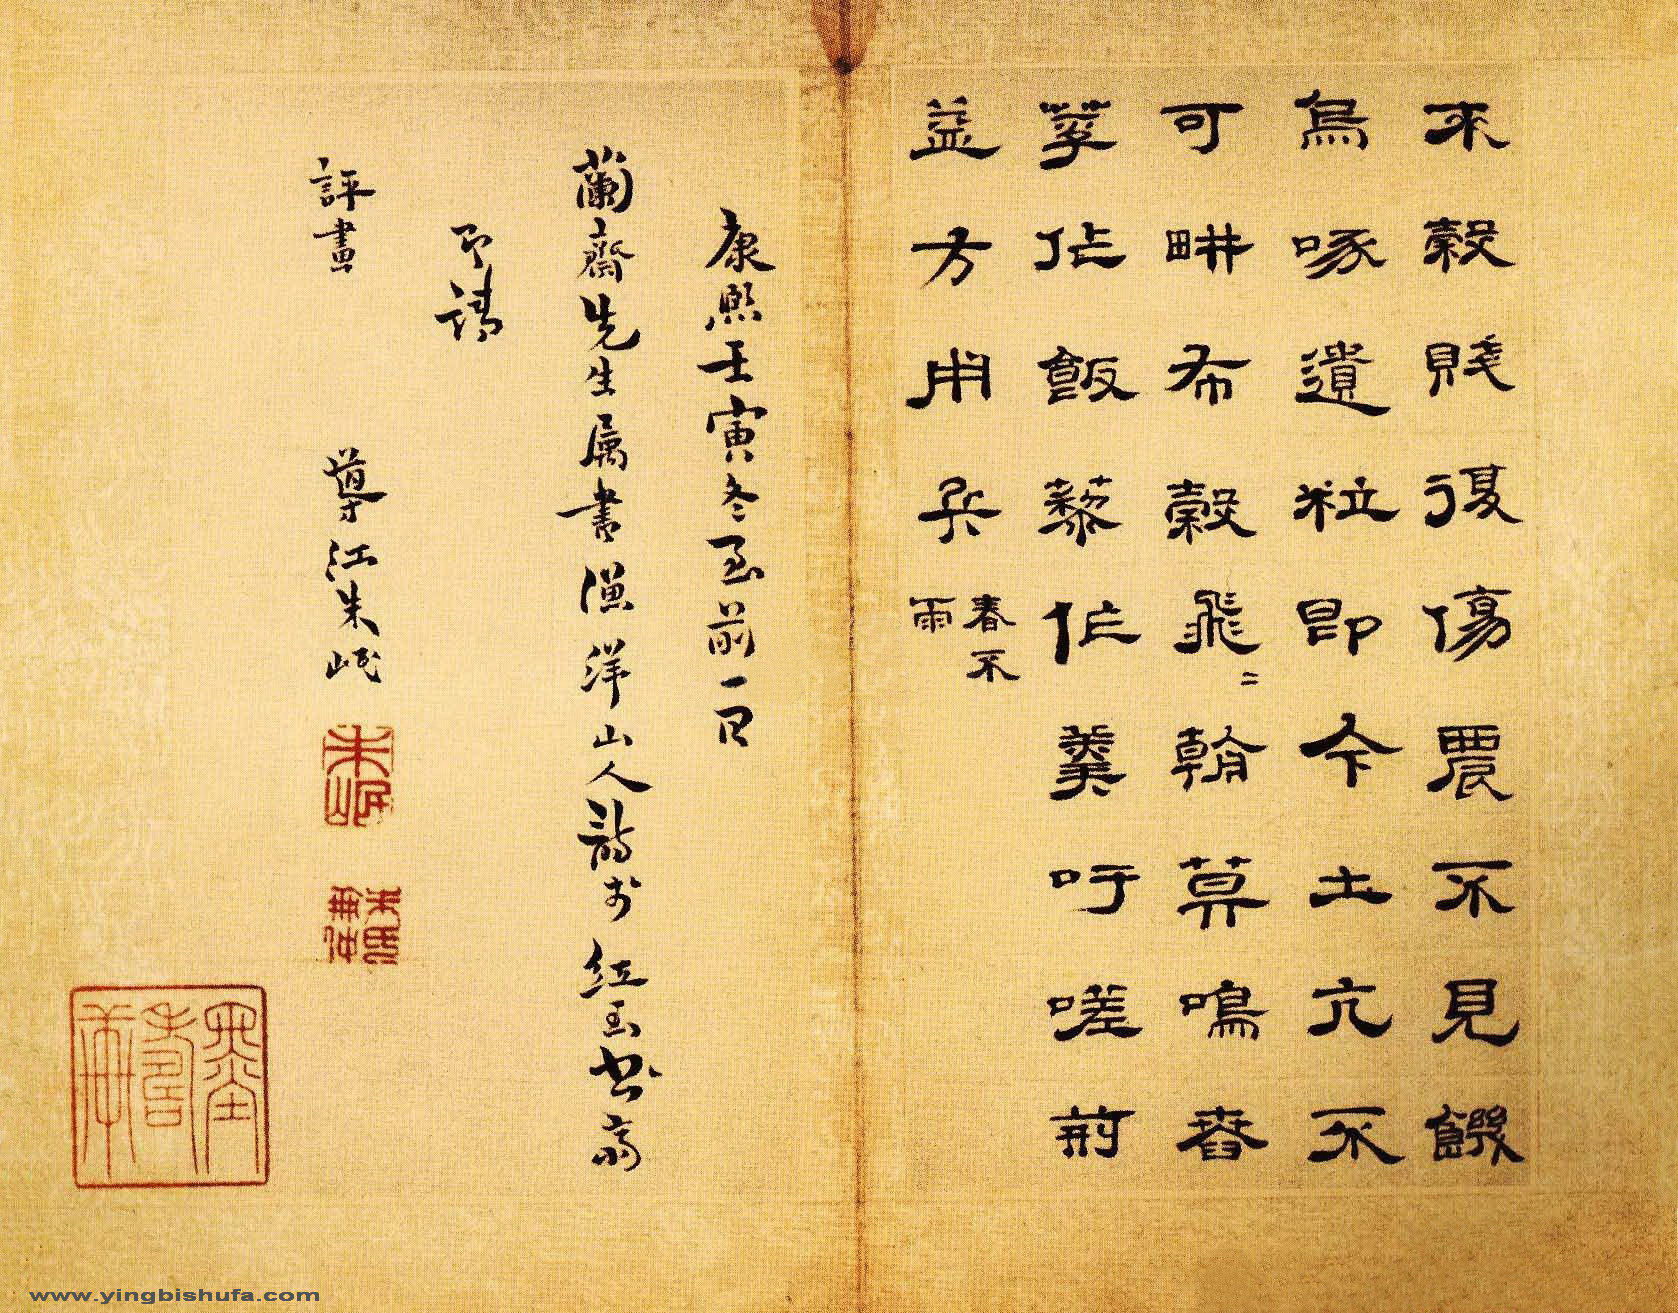 來穀賤復傷農不見饑
烏啄遺粒即今土亢不
可畊布穀飛〻翰莫鳴舂
莩作飯藜作羹吁嗟荊
益方用兵
春不
雨
康熙壬寅冬至前一日
蘭齋先生属書漁洋山人詩於紅玉書齋
即請
評畫
導江朱岷
www.yingbishufa.com